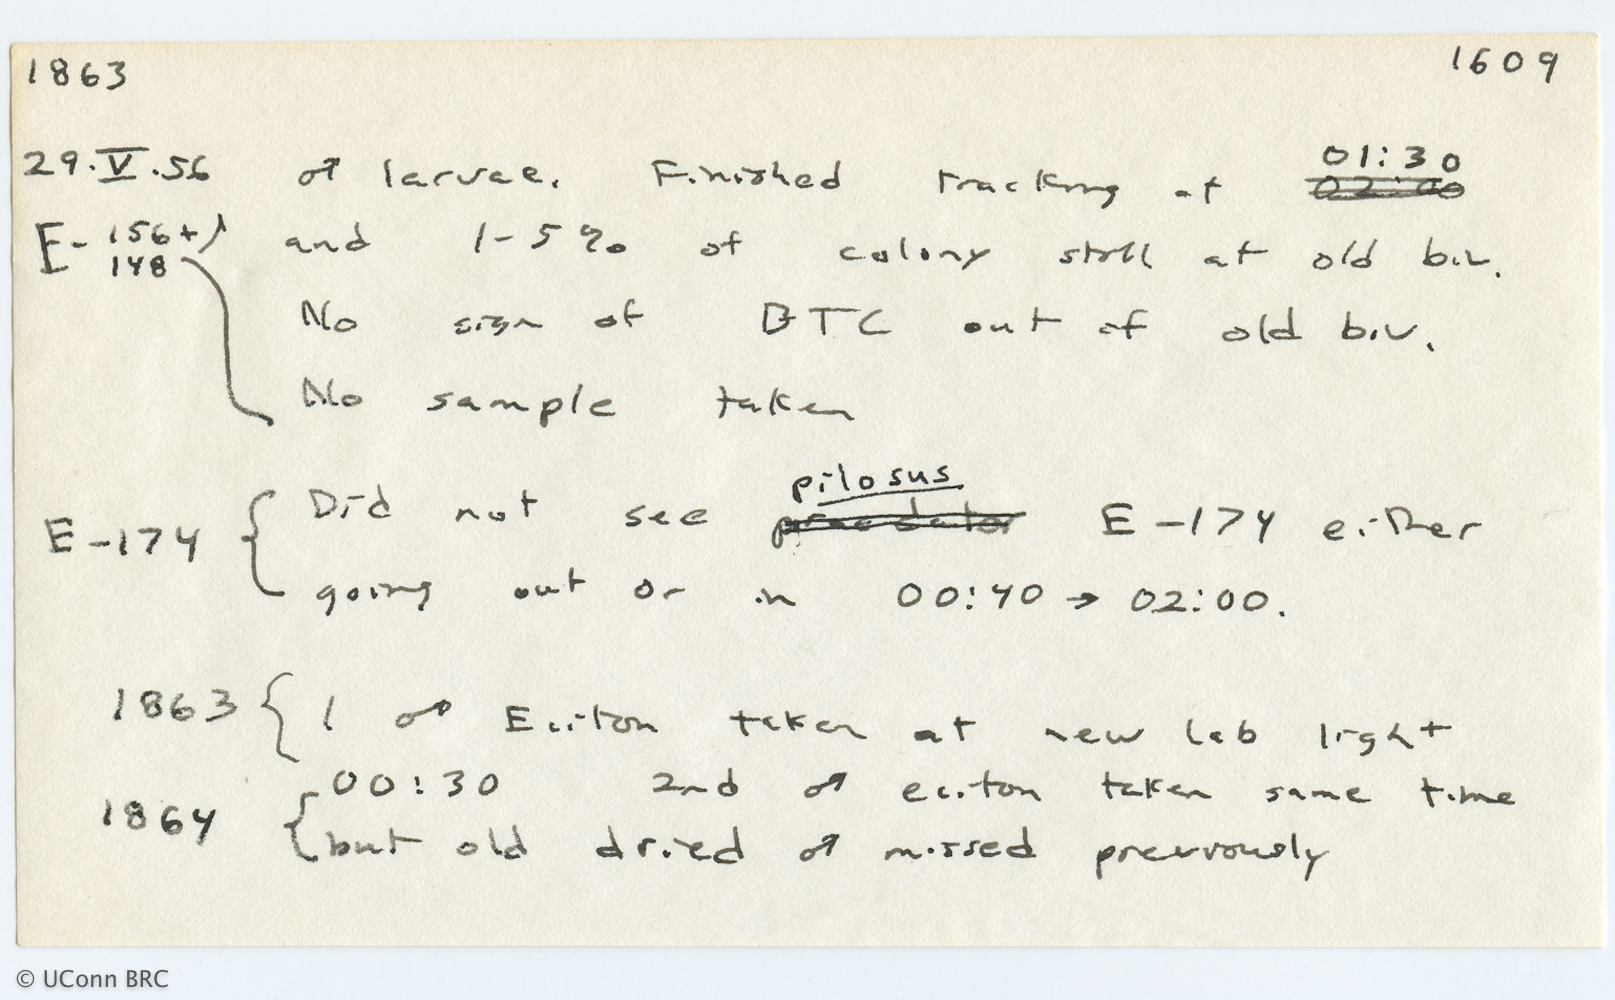 1863 1609
29.V.56 ♂ larvae. Finished tracking at 01:30 ~~02:00~~
E-156+148 and 1-5% of colony still at old biv.
No sign of BTC out of old biv.
No sample taken
pilosus
E-174 { Did not see ~~praedator~~ E-174 either
going out or in 00:40 → 02:00.
1863 { 1 ♂ Eciton taken at new lab light
00:30 2nd ♂ eciton taken same time
1864 { but old dried ♂ missed previously
© UConn BRC